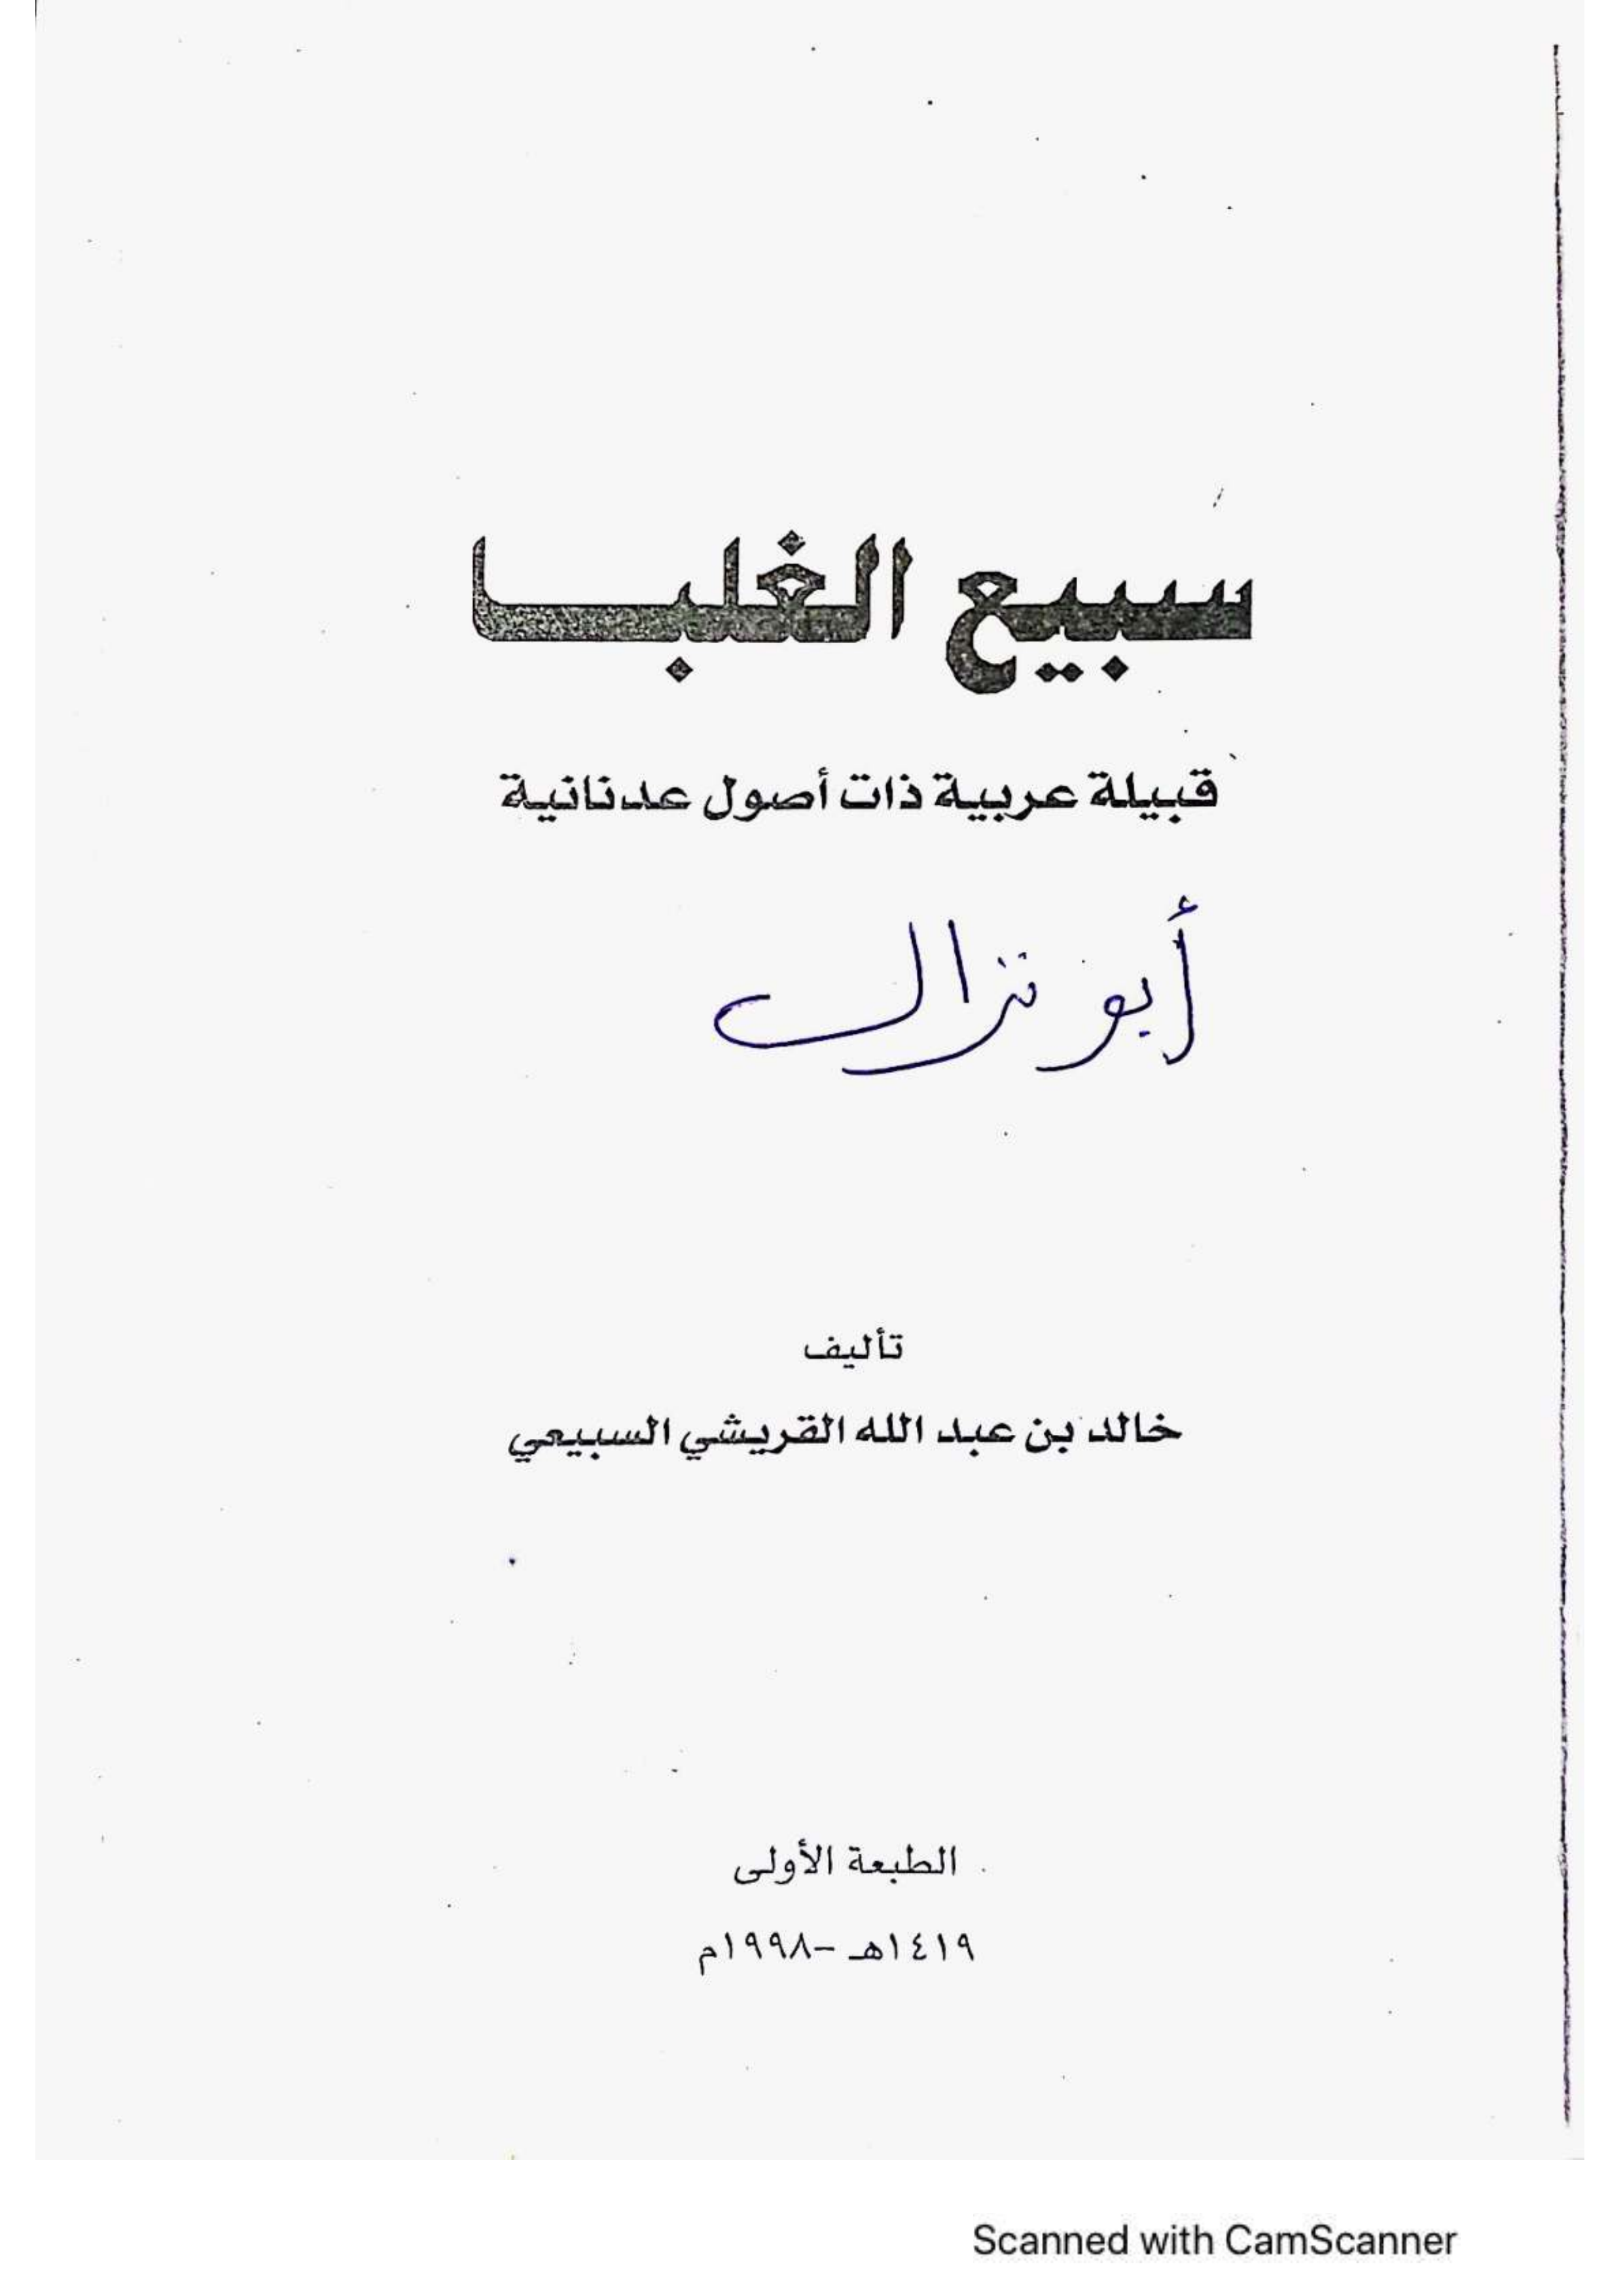 سبيع الغلبا
قبيلة عربية ذات أصول عدنانية
أبو نزال
تأليف
خالد بن عبد الله القريشي السبيعي
الطبعة الأولى
١٤١٩هـ -١٩٩٨م
Scanned with CamScanner